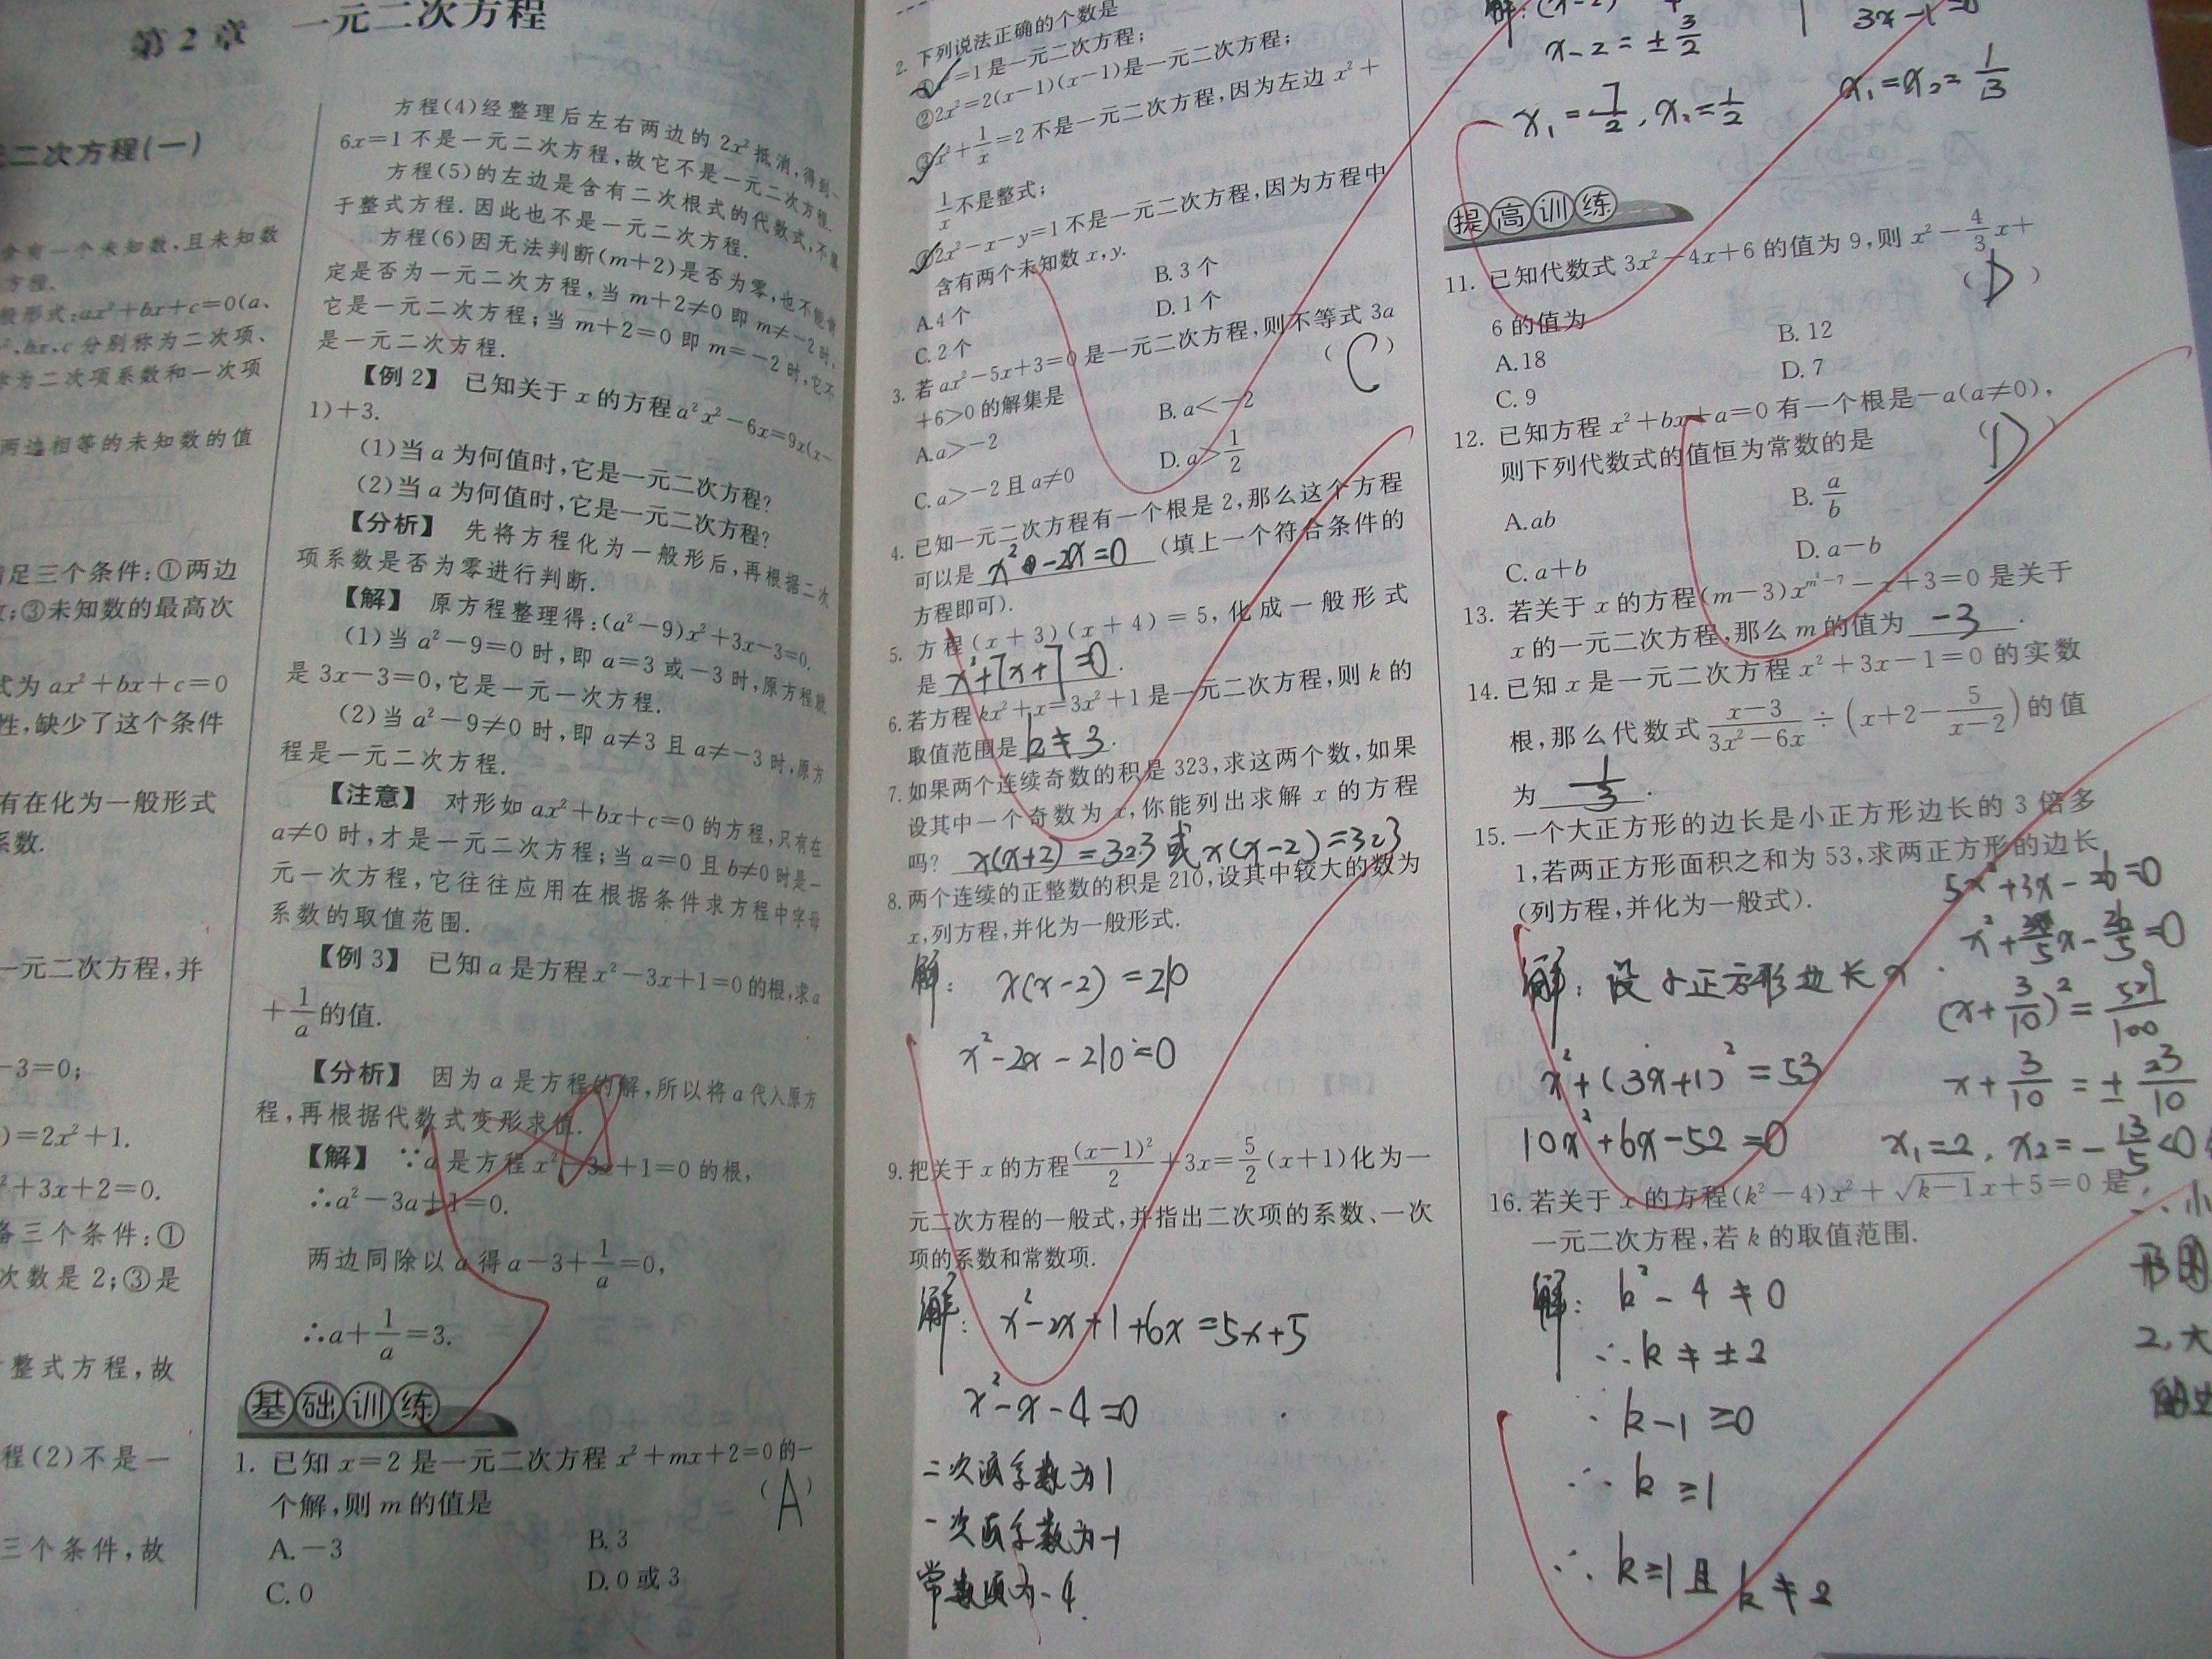 第2章 一元二次方程
二次方程(一)
含有一个未知数,且未知数
方程.
般形式:ax²+bx+c=0(a、
²,bx,c 分别称为二次项、
为二次项系数和一次项
两边相等的未知数的值
足三个条件:①两边
;③未知数的最高次
式为 ax²+bx+c=0
性,缺少了这个条件
有在化为一般形式
系数.
一元二次方程,并
-3=0;
)=2x²+1.
²+3x+2=0.
备三个条件:①
次数是2;③是
整式方程,故
程(2)不是一
三个条件,故
方程(4)经整理后左右两边的 2x² 抵消,得到
6x=1 不是一元二次方程,故它不是一元二次方程.
方程(5)的左边是含有二次根式的代数式,不属
于整式方程.因此也不是一元二次方程.
方程(6)因无法判断(m+2)是否为零,也不能肯
定是否为一元二次方程,当 m+2≠0 即 m≠-2 时,
它是一元二次方程;当 m+2=0 即 m=-2 时,它不
是一元二次方程.
【例2】 已知关于 x 的方程 a²x²-6x=9x(x-
1)+3.
(1)当 a 为何值时,它是一元二次方程?
(2)当 a 为何值时,它是一元二次方程?
【分析】 先将方程化为一般形后,再根据二次
项系数是否为零进行判断.
【解】 原方程整理得:(a²-9)x²+3x-3=0.
(1)当 a²-9=0 时,即 a=3 或-3 时,原方程就
是 3x-3=0,它是一元一次方程.
(2)当 a²-9≠0 时,即 a≠3 且 a≠-3 时,原方
程是一元二次方程.
【注意】 对形如 ax²+bx+c=0 的方程,只有在
a≠0 时,才是一元二次方程;当 a=0 且 b≠0 时是一
元一次方程,它往往应用在根据条件求方程中字母
系数的取值范围.
【例3】 已知 a 是方程 x²-3x+1=0 的根,求 a
+1/a 的值.
【分析】 因为 a 是方程的解,所以将 a 代入原方
程,再根据代数式变形求值.
【解】 ∵a 是方程 x²-3x+1=0 的根,
∴a²-3a+1=0.
两边同除以 a 得 a-3+1/a=0,
∴a+1/a=3.
基础训练
1. 已知 x=2 是一元二次方程 x²+mx+2=0 的一
个解,则 m 的值是 (A)
A.-3 B.3
C.0 D.0或3
2. 下列说法正确的个数是
=1 是一元二次方程;
②2x²=2(x-1)(x-1)是一元二次方程;
③x²+1/x=2 不是一元二次方程,因为左边 x²+
1/x不是整式;
④2x²-x-y=1 不是一元二次方程,因为方程中
含有两个未知数 x,y.
A.4个 B.3个
C.2个 D.1个
3. 若 ax²-5x+3=0 是一元二次方程,则不等式 3a
+6>0 的解集是 (C)
A.a>-2 B.a<-2
C.a>-2 且 a≠0 D.a>1/2
4. 已知一元二次方程有一个根是2,那么这个方程
可以是 x²-2x=0 (填上一个符合条件的
方程即可).
5. 方程(x+3)(x+4)=5,化成一般形式
是 x²+7x+7=0.
6. 若方程 kx²+x=3x²+1 是一元二次方程,则 k 的
取值范围是 k≠3.
7. 如果两个连续奇数的积是 323,求这两个数,如果
设其中一个奇数为 x,你能列出求解 x 的方程
吗? x(x+2)=323或x(x-2)=323
8. 两个连续的正整数的积是 210,设其中较大的数为
x,列方程,并化为一般形式.
解: x(x-2)=210
x²-2x-210=0
9. 把关于 x 的方程(x-1)²/2+3x=5/2(x+1)化为一
元二次方程的一般式,并指出二次项的系数、一次
项的系数和常数项.
解: x²-2x+1+6x=5x+5
x²-x-4=0
二次项系数为1
一次项系数为-1
常数项为-4.
解:(x-2)
x-2=±3/2
x₁=7/2,x₂=1/2
3x-1=0
x₁=x₂=1/3
提高训练
11. 已知代数式 3x²-4x+6 的值为 9,则 x²-4/3x+
6 的值为 (D)
A.18 B.12
C.9 D.7
12. 已知方程 x²+bx+a=0 有一个根是-a(a≠0),
则下列代数式的值恒为常数的是 (D)
A.ab B.a/b
C.a+b D.a-b
13. 若关于 x 的方程(m-3)x^(m²-7)-x+3=0 是关于
x 的一元二次方程,那么 m 的值为 -3.
14. 已知 x 是一元二次方程 x²+3x-1=0 的实数
根,那么代数式 (x-3)/(3x²-6x)÷(x+2-5/(x-2))的值
为 1/3.
15. 一个大正方形的边长是小正方形边长的 3 倍多
1,若两正方形面积之和为 53,求两正方形的边长
(列方程,并化为一般式).
解:设小正方形边长x.
x²+(3x+1)²=53
10x²+6x-52=0
5x²+3x-26=0
x²+3/5x-26/5=0
(x+3/10)²=529/100
x+3/10=±23/10
x₁=2,x₂=-13/5<0
∴小
形的
2,大
16. 若关于 x 的方程(k²-4)x²+√(k-1)x+5=0 是
一元二次方程,若 k 的取值范围.
解: k²-4≠0
∴k≠±2
∵k-1≥0
∴k≥1
∴k≥1且k≠2